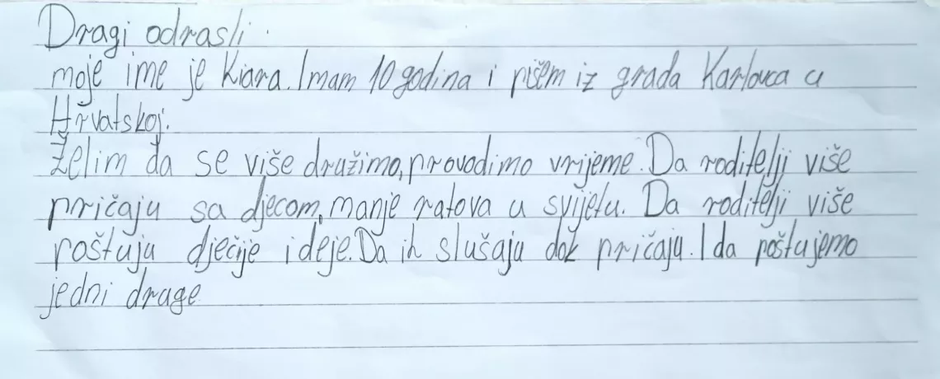 Dragi odrasli.
moje ime je Kiara. Imam 10 godina i pišem iz grada Karlovca u
Hrvatskoj.
Želim da se više družimo, provodimo vrijeme. Da roditelji više
pričaju sa djecom, manje ratova u svijetu. Da roditelji više
poštuju dječije ideje. Da ih slušaju dok pričaju. I da poštujemo
jedni druge